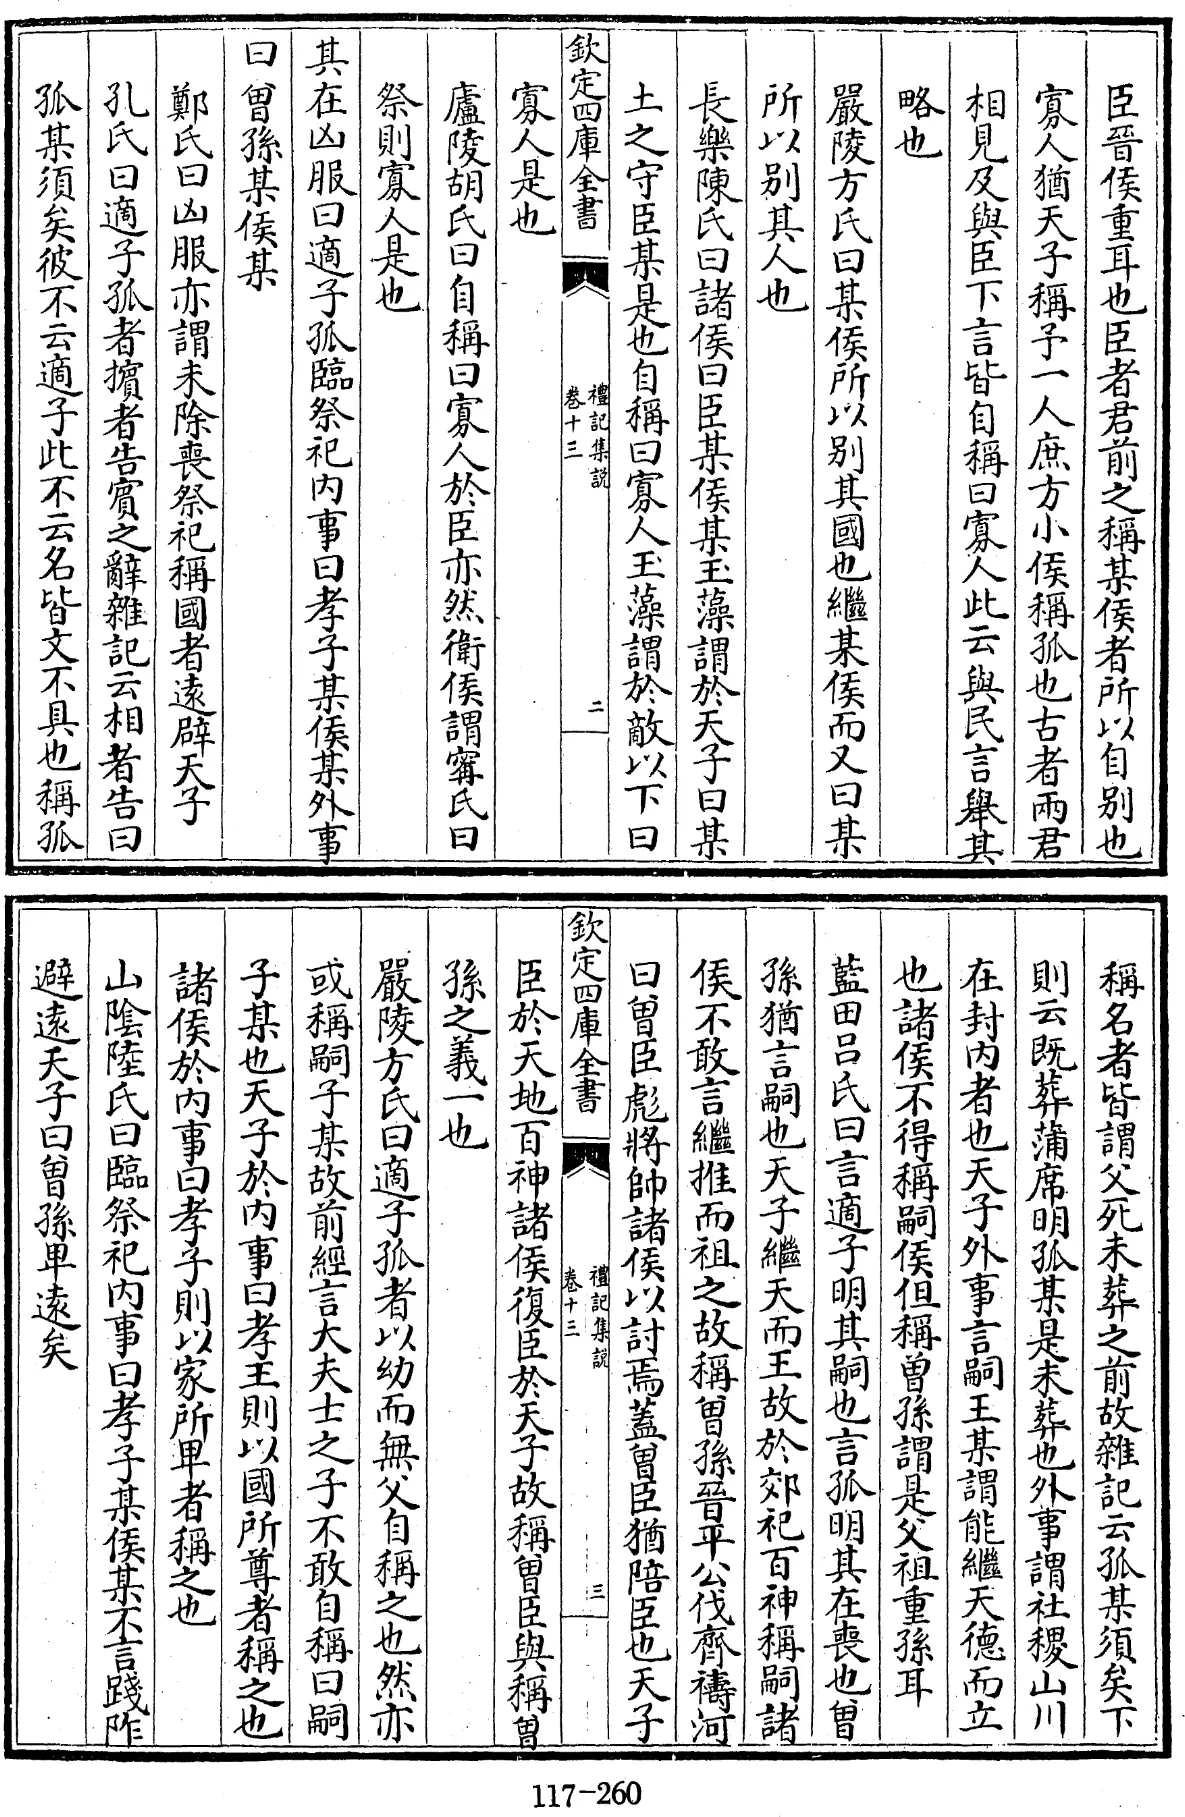 臣晉侯重耳也臣者君前之稱某侯者所以自别也
寡人猶天子稱予一人庶方小侯稱孤也古者兩君
相見及與臣下言皆自稱曰寡人此云與民言舉其
略也
嚴陵方氏曰某侯所以别其國也繼某侯而又曰某
所以别其人也
長樂陳氏曰諸侯曰臣某侯某玉藻謂於天子曰某
土之守臣某是也自稱曰寡人玉藻謂於敵以下曰
欽定四庫全書
禮記集說
卷十三
二
寡人是也
廬陵胡氏曰自稱曰寡人於臣亦然衛侯謂甯氏曰
祭則寡人是也
其在凶服曰適子孤臨祭祀内事曰孝子某侯某外事
曰曾孫某侯某
鄭氏曰凶服亦謂未除喪祭祀稱國者遠辟天子
孔氏曰適子孤者擯者告賓之辭雜記云相者告曰
孤某須矣彼不云適子此不云名皆文不具也稱孤
稱名者皆謂父死未葬之前故雜記云孤某須矣下
則云既葬蒲席明孤某是未葬也外事謂社稷山川
在封内者也天子外事言嗣王某謂能繼天德而立
也諸侯不得稱嗣侯但稱曾孫謂是父祖重孫耳
藍田吕氏曰言適子明其嗣也言孤明其在喪也曾
孫猶言嗣也天子繼天而王故於郊祀百神稱嗣諸
侯不敢言繼推而祖之故稱曾孫晉平公伐齊禱河
曰曾臣彪將帥諸侯以討焉蓋曾臣猶陪臣也天子
欽定四庫全書
禮記集說
卷十三
三
臣於天地百神諸侯復臣於天子故稱曾臣與稱曾
孫之義一也
嚴陵方氏曰適子孤者以幼而無父自稱之也然亦
或稱嗣子某故前經言大夫士之子不敢自稱曰嗣
子某也天子於内事曰孝王則以國所尊者稱之也
諸侯於内事曰孝子則以家所卑者稱之也
山陰陸氏曰臨祭祀内事曰孝子某侯某不言踐阼
避遠天子曰曾孫卑遠矣
117-260